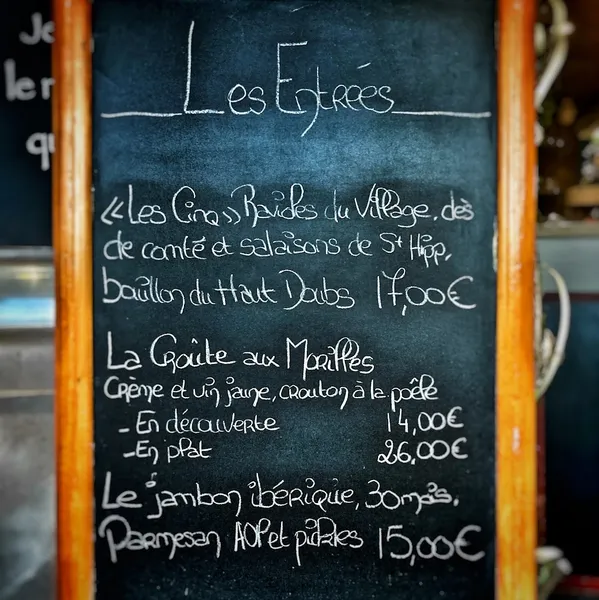 Je
le r
qu
Les Entrées
« Les Cinq » Ravioles du Village, dés
de comté et salaisons de St Hipp,
bouillon du Haut Doubs 17,00€
La Croûte aux Morilles
Crème et vin jaune, crouton à la poêle
- En découverte 14,00€
- En plat 26,00€
Le jambon ibérique, 30 mois,
Parmesan AOP et pickles 15,00€